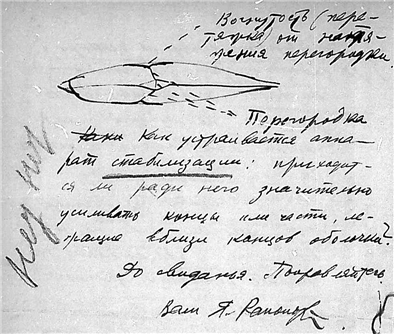 Вогнутость (пере-
тяжка) от натя-
жения перегородки.
Перегородка
Как устраивается аппа-
рат стабилизации: приходит-
ся ли ради него значительно
усиливать концы или части, ле-
жащие вблизи концов оболочки?
До свиданья. Поправляйтесь
Ваш Я.